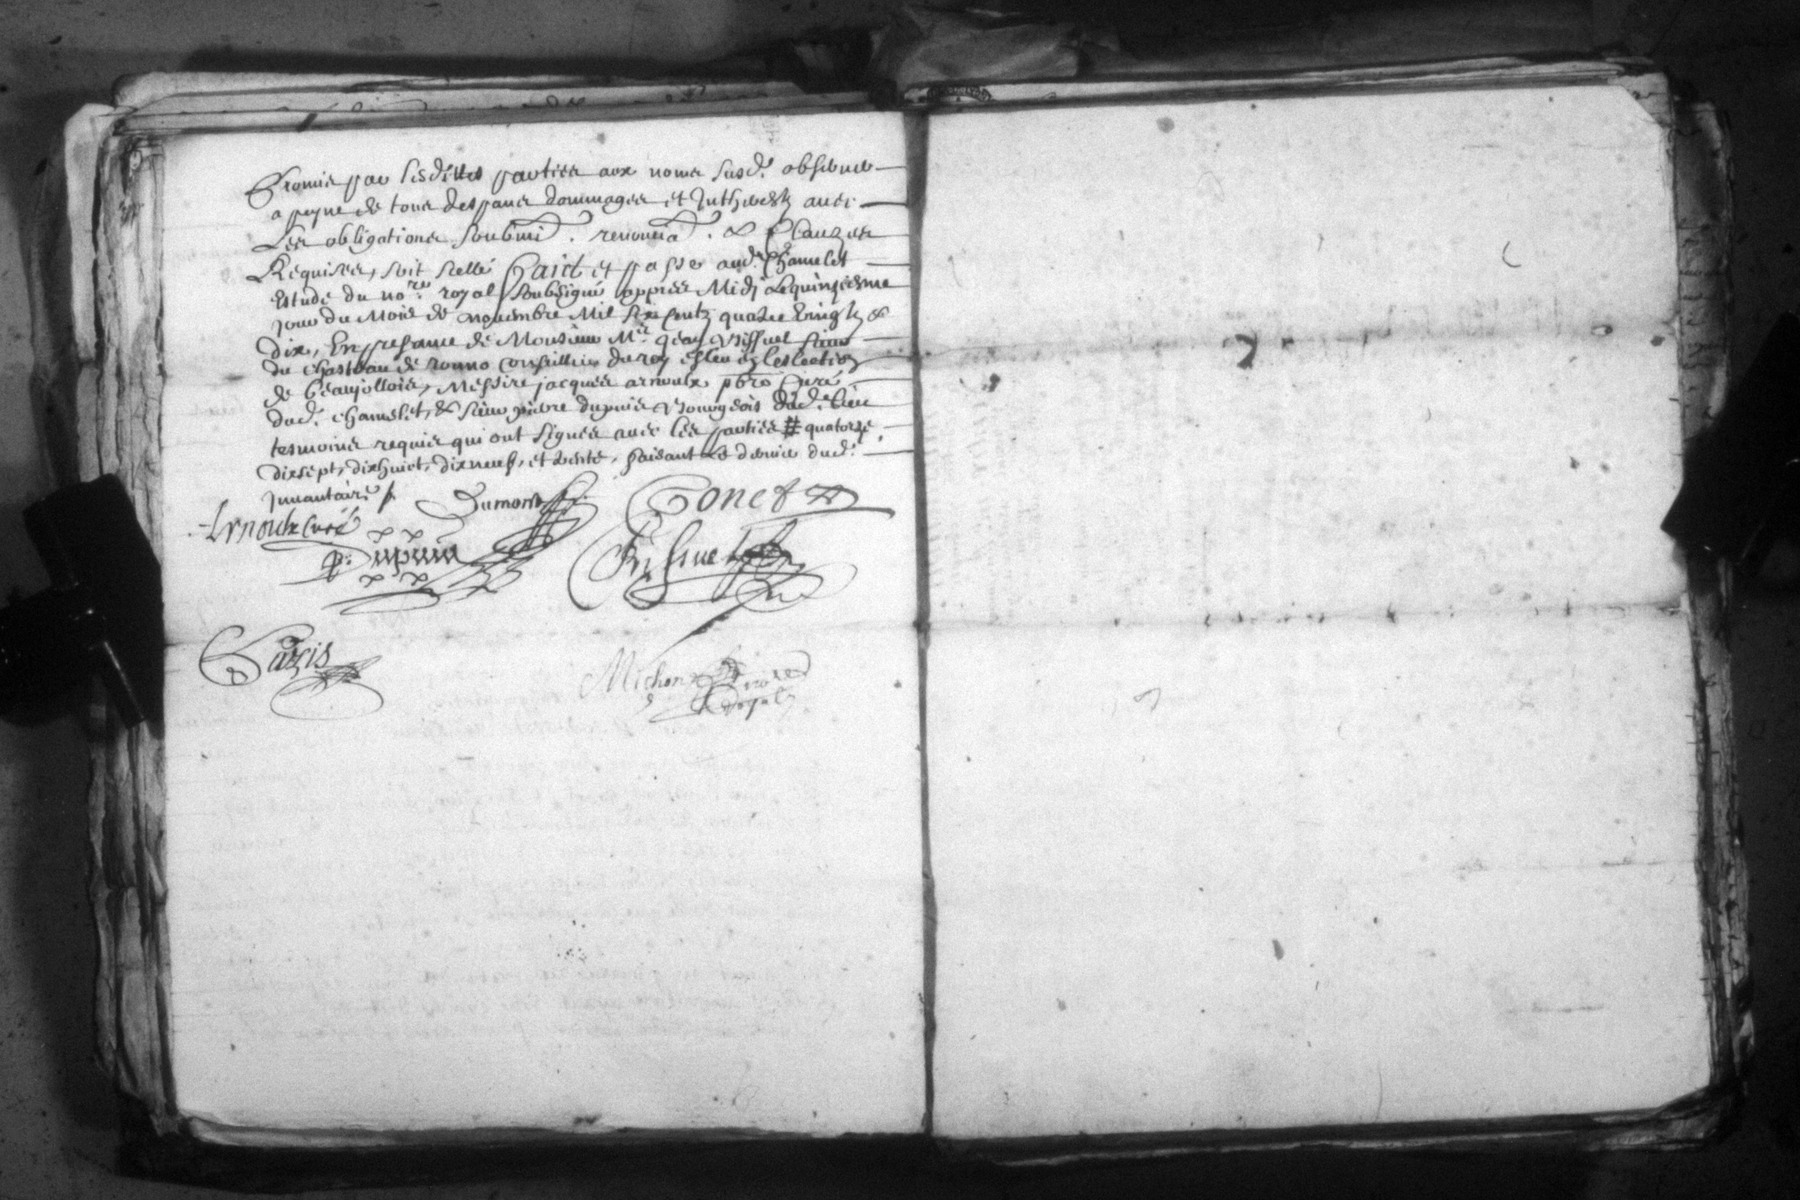 Promis par lesdittes parties aux noms susd. observer
a peyne de tous despans dommages et Intheretz avec
Les obligations soubmi. renoncia. & Clauzes
Requises, soit scellé Faict et passé aud. Chamelet
estude du no.re royal soubsigné appres Midj Lequinziesme
jour du Mois de novembre Mil six centz quatre vingtz &
dix, En presance de Monsieur M.re Jean Riffuel sieur
du chasteau de ronno conseillier du roy esleu en Leslection
de beaujollois, Messire jacques arnoulx pbre Curé
dud. chamelet, & sieur pierre dupuis Bourgeois dud. lieu
tesmoins requis qui ont signés avec les parties # quatorze,
dixsept, dixhuict, dixneuf, et trente, faisant le dernier dud.
jnvantaire
Dumont
Gonet
Arnoulx curé
P. Dupuis
Riffuel
Garcis
Michon
No.re
Royal